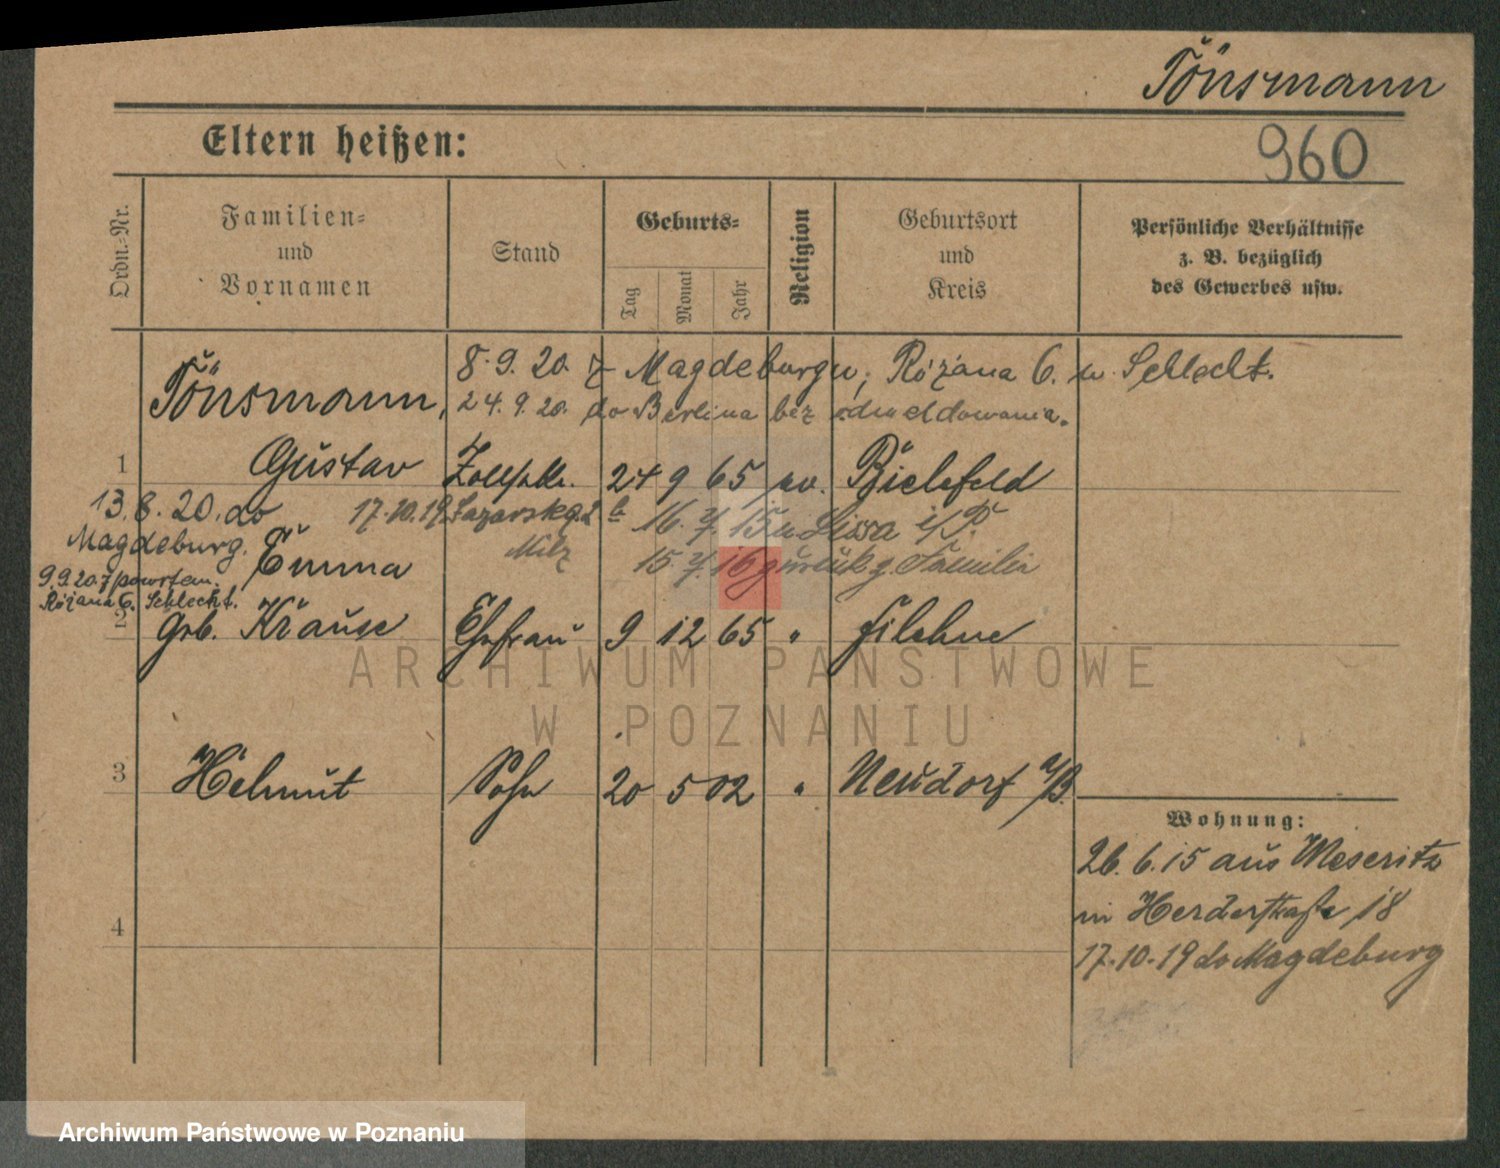 Tönsmann
960
Eltern heißen:
Ordn.-Nr.
Familien-
und
Vornamen
Stand
Geburts-
Tag
Monat
Jahr
Religion
Geburtsort
und
Kreis
Persönliche Verhältnisse
z. B. bezüglich
des Gewerbes usw.
8.9.20. z Magdeburgu, Różana 6. u. Schlecht.
Tönsmann,
24.9.20. do Berlina bez odmeldowania.
1 Gustav 24 9 65 ev. Bielefeld
13.8.20. do
Magdeburg.
17.10.19. Łazarska
16. 7. 15 n. Lissa i/P.
Milz
15. 7. 16 zurück z. Familie
Emma
9.9.20 z powrotem.
Różana 6. Schlecht.
2 geb. Krause Ehefrau 9 12 65 " Filehne
3 Helmut Sohn 20 5 02 " Neudorf a/B.
4
Wohnung:
26.6.15 aus Meseritz
in Herderstraße 18
17.10.19 do Magdeburg
ARCHIWUM PAŃSTWOWE
W POZNANIU
Archiwum Państwowe w Poznaniu